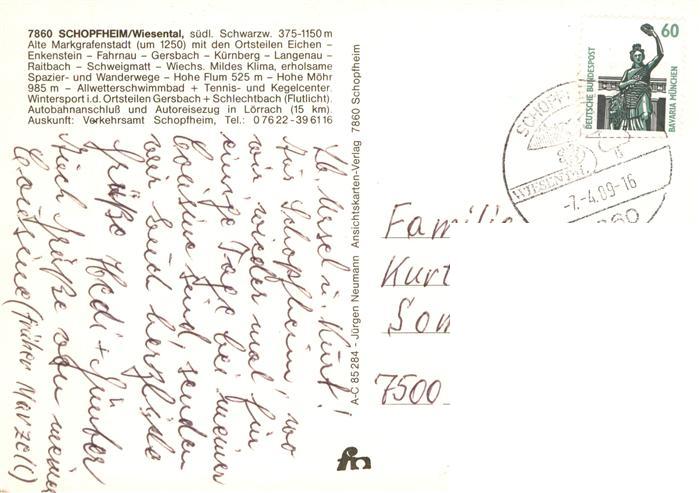 7860 SCHOPFHEIM/Wiesental, südl. Schwarzw. 375-1150 m
Alte Markgrafenstadt (um 1250) mit den Ortsteilen Eichen –
Enkenstein – Fahrnau – Gersbach – Kürnberg – Langenau –
Raitbach – Schweigmatt – Wiechs. Mildes Klima, erholsame
Spazier- und Wanderwege – Hohe Flum 525 m – Hohe Möhr
985 m – Allwetterschwimmbad + Tennis- und Kegelcenter.
Wintersport i.d. Ortsteilen Gersbach + Schlechtbach (Flutlicht).
Autobahnanschluß und Autoreisezug in Lörrach (15 km).
Auskunft: Verkehrsamt Schopfheim, Tel.: 0 76 22 - 39 6116
Lb Ursel u. Kurt!
Aus Schopfheim, wo
wir wieder mal für
einige Tage bei meiner
Cousine sind, senden
wir Euch herzliche
Grüße Hedi + Günter
Auch Grüße von meiner
Cousine (früher Marzell)
A-C 85 284 - Jürgen Neumann Ansichtskarten-Verlag 7860 Schopfheim
60
DEUTSCHE BUNDESPOST
BAVARIA MÜNCHEN
SCHOPF
-7.-4.09-16
Famili
Kurt
Son
7500